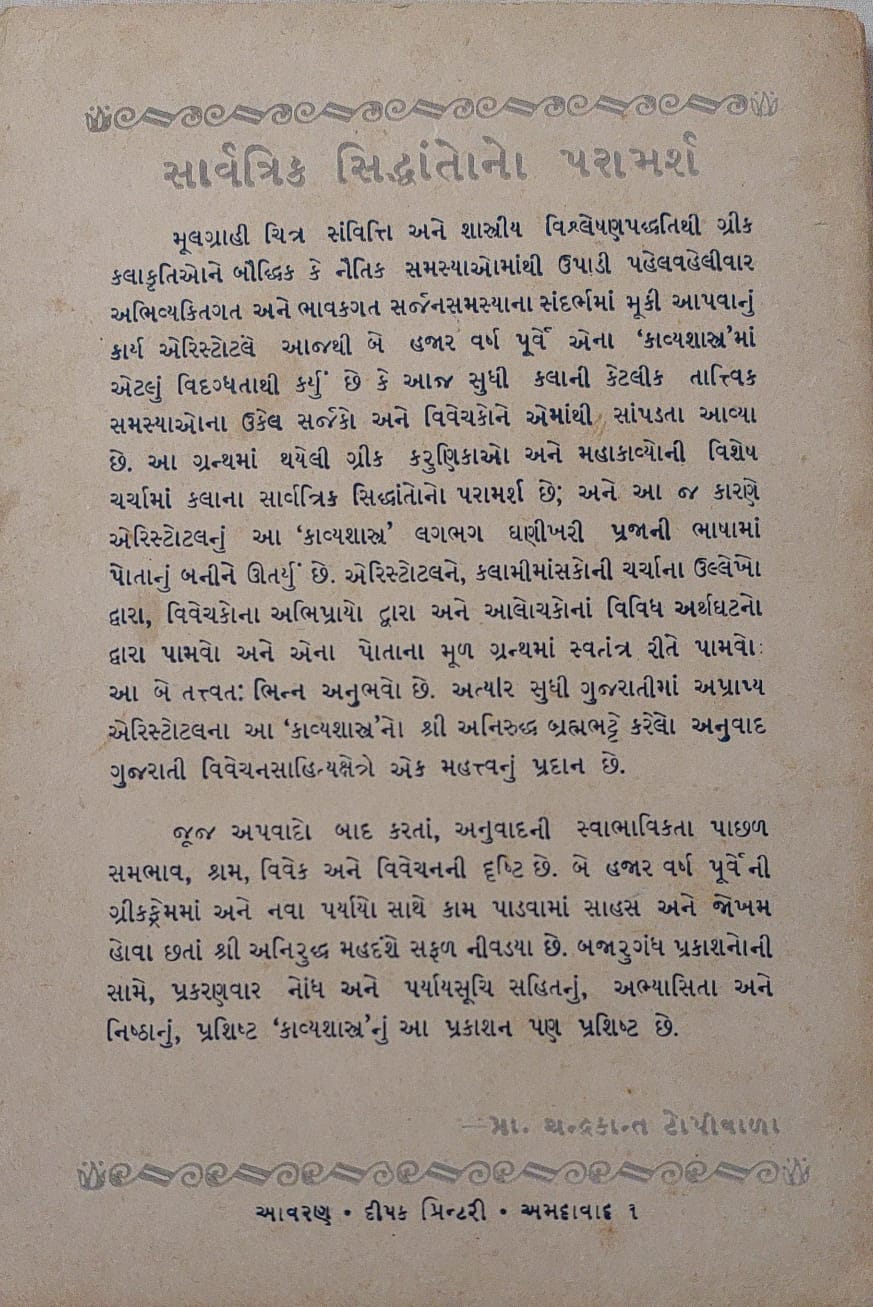 સાર્વત્રિક સિદ્ધાંતોનો પરામર્શ
મૂલગ્રાહી ચિત્ર સંવિત્તિ અને શાસ્ત્રીય વિશ્લેષણપદ્ધતિથી ગ્રીક
કલાકૃતિઓને બૌદ્ધિક કે નૈતિક સમસ્યાઓમાંથી ઉપાડી પહેલવહેલીવાર
અભિવ્યકિતગત અને ભાવકગત સર્જનસમસ્યાના સંદર્ભમાં મૂકી આપવાનું
કાર્ય એરિસ્ટોટલે આજથી બે હજાર વર્ષ પૂર્વે એના ‘કાવ્યશાસ્ત્ર’માં
એટલું વિદગ્ધતાથી કર્યું છે કે આજ સુધી કલાની કેટલીક તાત્ત્વિક
સમસ્યાઓના ઉકેલ સર્જકો અને વિવેચકોને એમાંથી સાંપડતા આવ્યા
છે. આ ગ્રન્થમાં થયેલી ગ્રીક કરુણિકાઓ અને મહાકાવ્યોની વિશેષ
ચર્ચામાં કલાના સાર્વત્રિક સિદ્ધાંતોનો પરામર્શ છે; અને આ જ કારણે
એરિસ્ટોટલનું આ ‘કાવ્યશાસ્ત્ર’ લગભગ ઘણીખરી પ્રજાની ભાષામાં
પોતાનું બનીને ઊતર્યું છે. એરિસ્ટોટલને, કલામીમાંસકોની ચર્ચાના ઉલ્લેખો
દ્વારા, વિવેચકોના અભિપ્રાયો દ્વારા અને આલોચકોનાં વિવિધ અર્થઘટનો
દ્વારા પામવો અને એના પોતાના મૂળ ગ્રન્થમાં સ્વતંત્ર રીતે પામવો:
આ બે તત્ત્વત: ભિન્ન અનુભવો છે. અત્યાર સુધી ગુજરાતીમાં અપ્રાપ્ય
એરિસ્ટોટલના આ ‘કાવ્યશાસ્ત્ર’નો શ્રી અનિરુદ્ધ બ્રહ્મભટ્ટે કરેલો અનુવાદ
ગુજરાતી વિવેચનસાહિત્યક્ષેત્રે એક મહત્ત્વનું પ્રદાન છે.
જૂજ અપવાદો બાદ કરતાં, અનુવાદની સ્વાભાવિકતા પાછળ
સમભાવ, શ્રમ, વિવેક અને વિવેચનની દૃષ્ટિ છે. બે હજાર વર્ષ પૂર્વેની
ગ્રીકફ્રેમમાં અને નવા પર્યાયો સાથે કામ પાડવામાં સાહસ અને જોખમ
હોવા છતાં શ્રી અનિરુદ્ધ મહદંશે સફળ નીવડયા છે. બજારુગંધ પ્રકાશનોની
સામે, પ્રકરણવાર નોંધ અને પર્યાયસૂચિ સહિતનું, અભ્યાસિતા અને
નિષ્ઠાનું, પ્રશિષ્ટ ‘કાવ્યશાસ્ત્ર’નું આ પ્રકાશન પણ પ્રશિષ્ટ છે.
—પ્રા. ચન્દ્રકાન્ત ટોપીવાળા
આવરણ • દીપક પ્રિન્ટરી • અમદાવાદ ૧